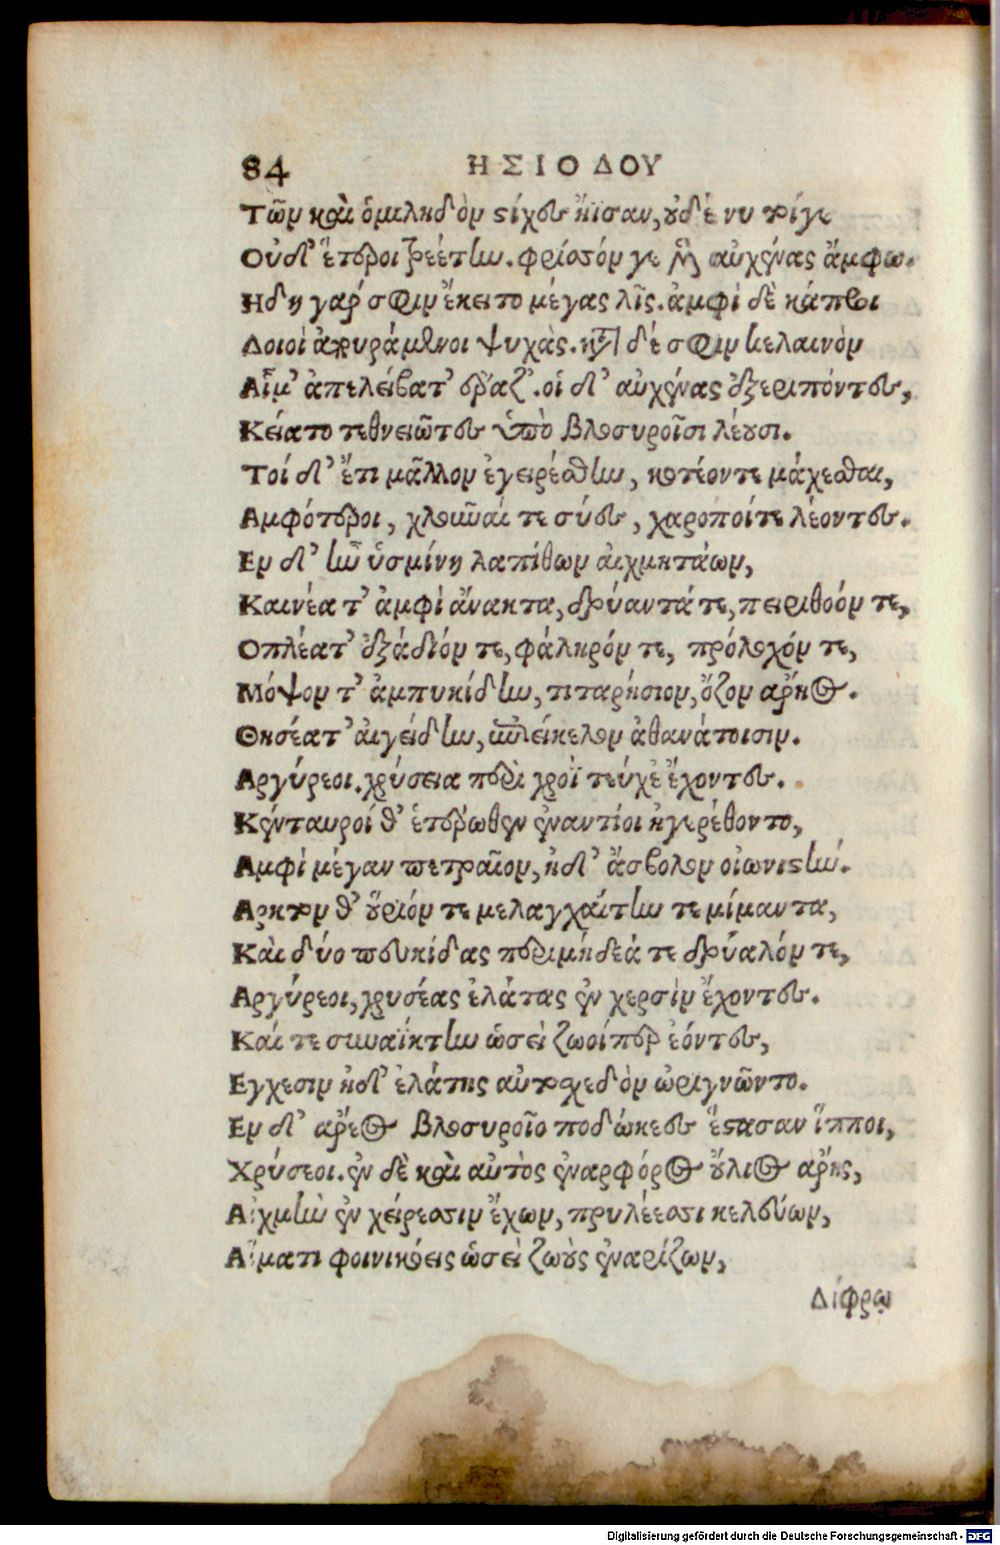 84 ΗΣΙΟΔΟΥ
Τῶν καὶ ὁμιληδὸν στίχες ἤϊσαν, οὐδέ νυ τώγε
Οὐδ' ἕτεροι τρεέτην. φρίσσόν γε μὴν αὐχένας ἄμφω.
Ηδη γάρ σφιν ἔκειτο μέγας λῖς. ἀμφὶ δὲ κάπροι
Δοιοὶ ἀπουράμενοι ψυχὰς. κατὰ δέ σφιν κελαινὸν
Αἷμ' ἀπελείβετ' ἔραζ'. οἱ δ' αὐχένας ἐξεριπόντες,
Κείατο τεθνειῶτες ὑπὸ βλοσυροῖσι λέουσι.
Τοί δ' ἔτι μᾶλλον ἐγειρέσθην, κοτέοντε μάχεσθαι,
Αμφότεροι, χλοῦναί τε σύες, χαροποίτε λέοντες.
Εν δ' ἦν ὑσμίνη λαπίθων αἰχμητάων,
Καινέα τ' ἀμφὶ ἄνακτα, δρύαντά τε, πειρίθοόν τε,
Οπλέατ' ἐξάδιόν τε, φάληρόν τε, πρόλοχόν τε,
Μόψον τ' ἀμπυκίδην, τιταρήσιον, ὄζον ἄρηος.
Θησέατ' αἰγείδην, ἐπιείκελον ἀθανάτοισιν.
Αργύρεοι. χρύσεια περὶ χροῒ τεύχε' ἔχοντες.
Κένταυροί θ' ἑτέρωθεν ἐναντίοι ἠγερέθοντο,
Αμφὶ μέγαν πετραῖον, ἠδ' ἄσβολον οἰωνιστήν.
Αρκτον θ' οὔριόν τε μελαγχαίτην τε μίμαντα,
Καὶ δύο πευκίδας περιμήδεά τε δρύαλόν τε,
Αργύρεοι, χρυσέας ἐλάτας ἐν χερσὶν ἔχοντες.
Καί τε συναΐκτην ὡσεὶ ζωοίπερ ἐόντες,
Εγχεσιν ἠδ' ἐλάτῃς αὐτοχεδὸν ὠριγνῶντο.
Εν δ' ἄρεος βλοσυροῖο ποδώκεες ἕστασαν ἵπποι,
Χρύσεοι. ἐν δὲ καὶ αὐτὸς ἐναρφόρος οὔλιος ἄρης,
Αἰχμὴν ἐν χείρεσσιν ἔχων, πρυλέεσσι κελεύων,
Αἵματι φοινικόεις ὡσεὶ ζωοὺς ἐναρίζων,
Δίφρῳ
Digitalisierung gefördert durch die Deutsche Forschungsgemeinschaft - DFG